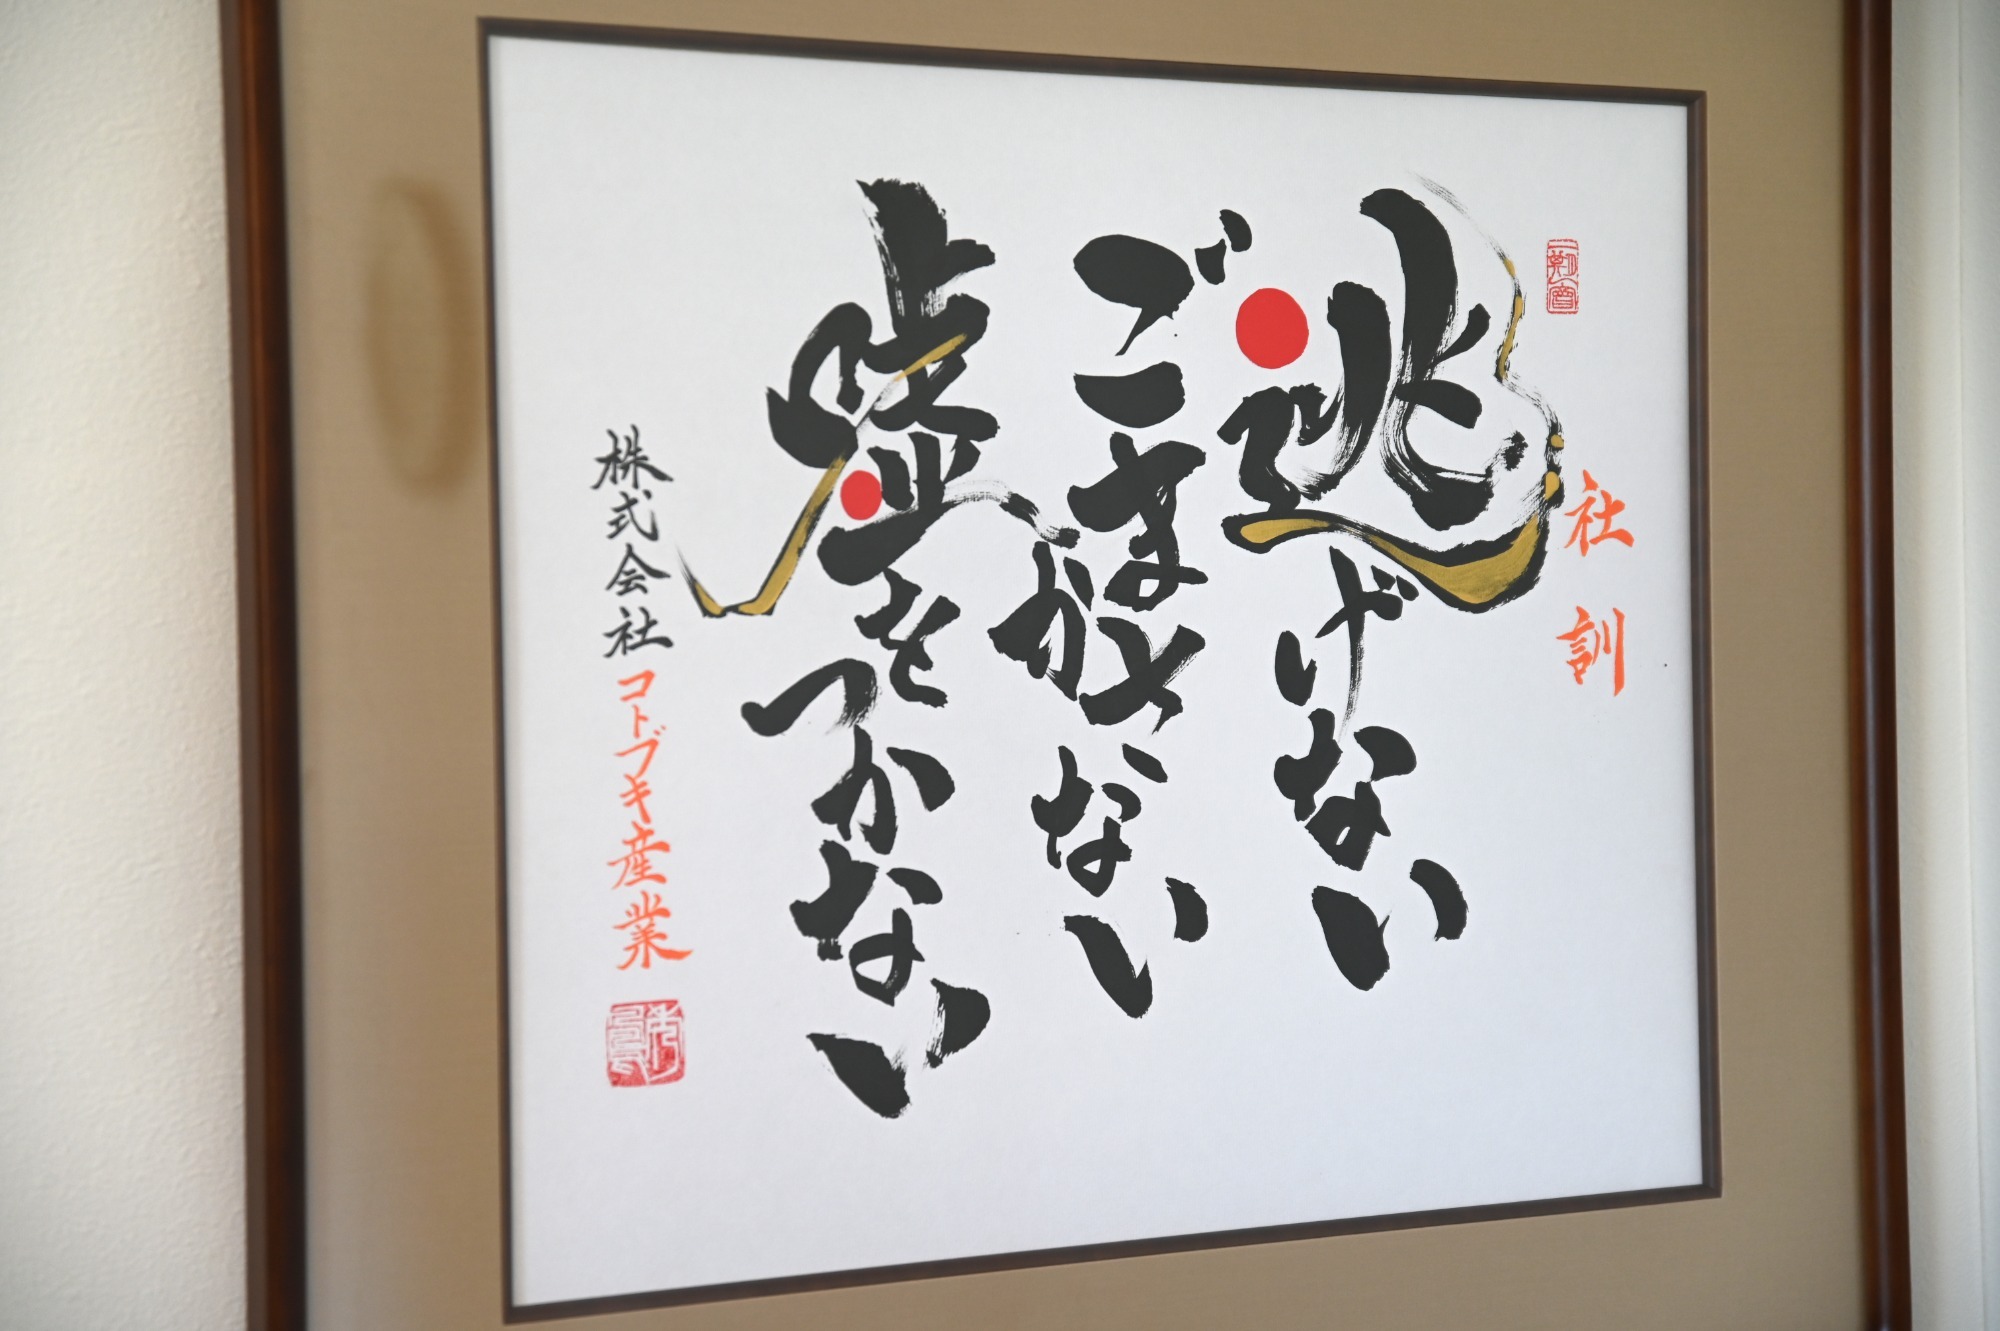 社訓
逃げない
ごまかさない
嘘をつかない
株式会社コトブキ産業